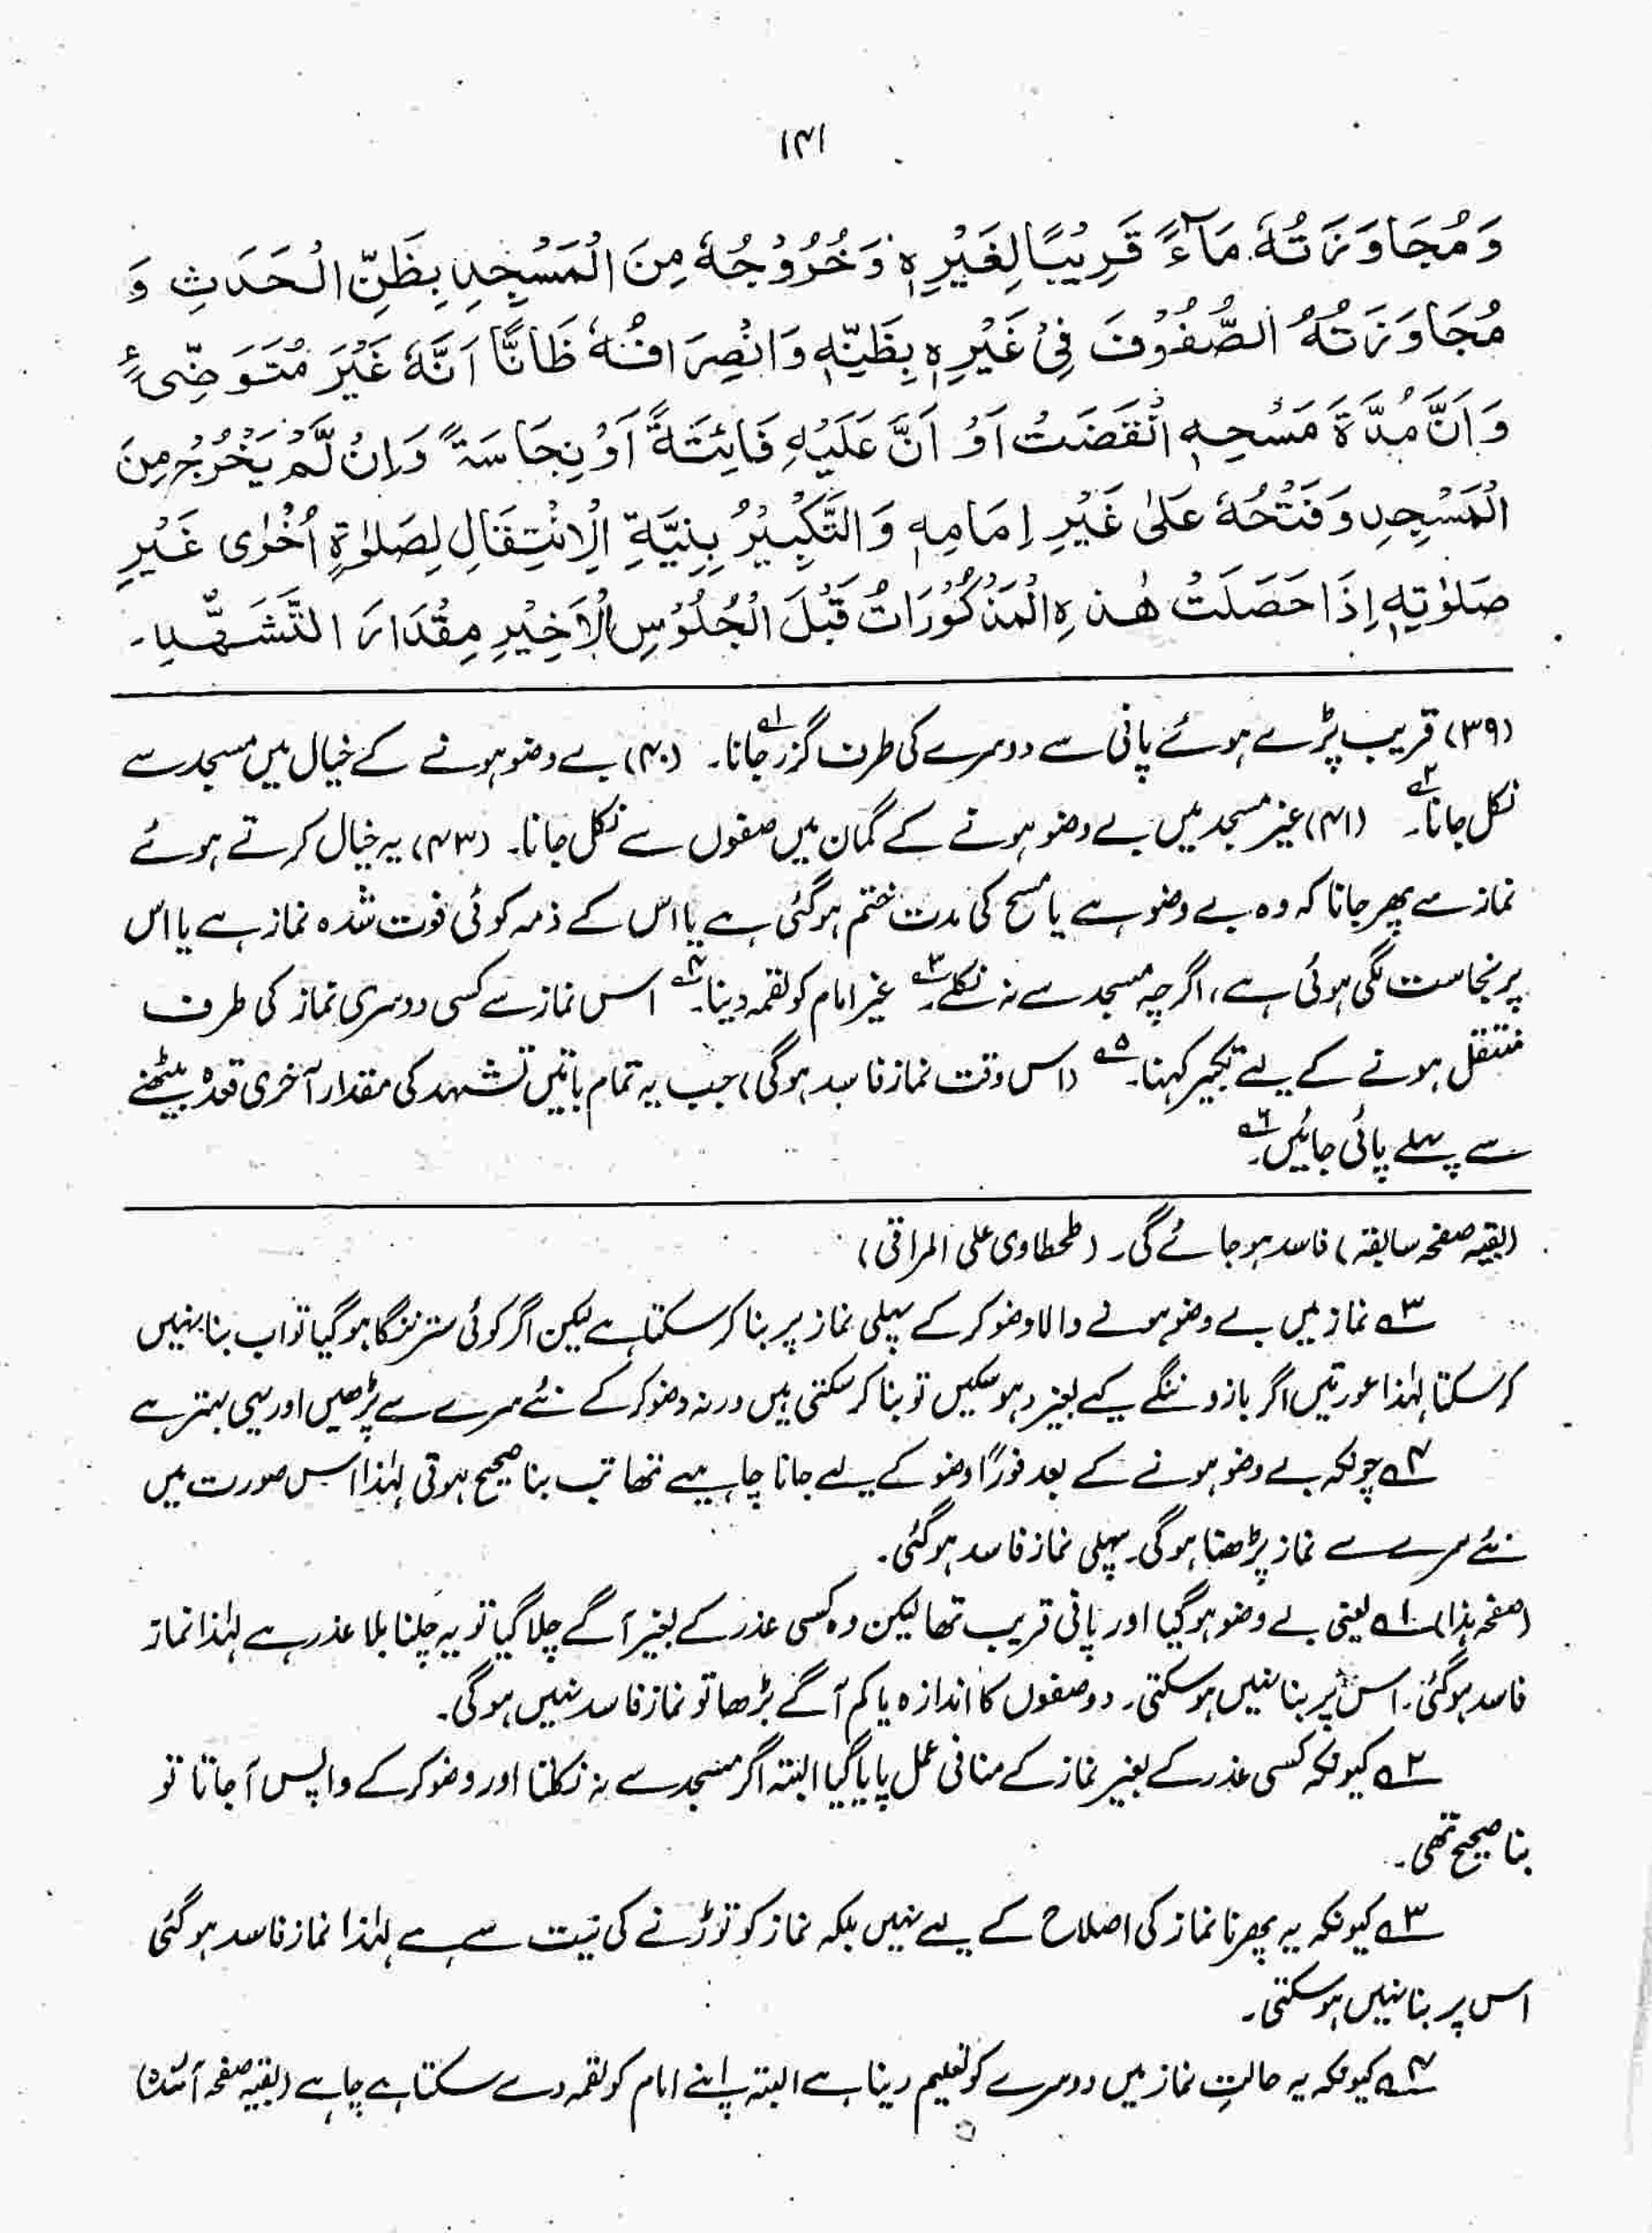 ۱۴۱
وَمُجَاوَزَتُهٗ مَآءً قَرِیْبًا لِغَیْرِهٖ وَخُرُوْجُهٗ مِنَ الْمَسْجِدِ بِظَنِّ الْحَدَثِ وَ
مُجَاوَزَتُهُ الصُّفُوْفَ فِیْ غَیْرِهٖ بِظَنِّهٖ وَانْصِرَافُهٗ ظَانًّا اَنَّهٗ غَیْرَ مُتَوَضِّیءٍ
وَاَنَّ مُدَّةَ مَسْحِهٖ انْقَضَتْ اَوْ اَنَّ عَلَیْهِ فَائِتَةً اَوْ نِجَاسَةً وَاِنْ لَّمْ یَخْرُجْ مِنَ
الْمَسْجِدِ وَفَتْحُهٗ عَلٰی غَیْرِ اِمَامِهٖ وَالتَّكْبِیْرُ بِنِیَّةِ الْاِنْتِقَالِ لِصَلٰوةٍ اُخْرٰی غَیْرِ
صَلٰوتِهٖ اِذَا حَصَلَتْ هٰذِهِ الْمَذْكُوْرَاتُ قَبْلَ الْجُلُوْسِ الْاَخِیْرِ مِقْدَارَ التَّشَهُّدِ۔
(۳۹) قریب پڑے ہوئے پانی سے دوسرے کی طرف گزر جانا۔ ۱ (۴۰) بے وضو ہونے کے خیال میں مسجد سے
نکل جانا۔ ۲ (۴۱) غیر مسجد میں بے وضو ہونے کے گمان میں صفوں سے نکل جانا۔ (۴۳) یہ خیال کرتے ہوئے
نماز سے پھر جانا کہ وہ بے وضو ہے یا مسح کی مدت ختم ہوگئی ہے یا اس کے ذمہ کوئی فوت شدہ نماز ہے یا اس
پر نجاست لگی ہوئی ہے، اگرچہ مسجد سے نہ نکلے۔ ۳ غیر امام کو لقمہ دینا۔ ۴ اس نماز سے کسی دوسری نماز کی طرف
منتقل ہونے کے لیے تکبیر کہنا۔ ۵ (اس وقت نماز فاسد ہوگی) جب یہ تمام باتیں تشہد کی مقدار آخری قعدہ بیٹھنے
سے پہلے پائی جائیں۔ ۶
(بقیہ صفحہ سابقہ) فاسد ہو جائے گی۔ (طحطاوی علی المراقی)
۳ نماز میں بے وضو ہونے والا وضو کر کے پہلی نماز پر بنا کر سکتا ہے لیکن اگر کوئی ستر ننگا ہو گیا تو اب بنا نہیں
کر سکتا لہٰذا عورتیں اگر بازو ننگے کیے بغیر دھو سکیں تو بنا کر سکتی ہیں ورنہ وضو کر کے نئے سرے سے پڑھیں اور یہی بہتر ہے
۴ چونکہ بے وضو ہونے کے بعد فوراً وضو کے لیے جانا چاہیے تھا تب بنا صحیح ہوتی لہٰذا اس صورت میں
نئے سرے سے نماز پڑھنا ہوگی۔ پہلی نماز فاسد ہوگئی۔
(صفحہ ہذا) ۱ یعنی بے وضو ہوگیا اور پانی قریب تھا لیکن وہ کسی عذر کے بغیر آگے چلا گیا تو یہ چلنا بلا عذر ہے لہٰذا نماز
فاسد ہوگئی۔ اس پر بنا نہیں ہو سکتی۔ دو صفوں کا اندازہ یا کم آگے بڑھا تو نماز فاسد نہیں ہوگی۔
۲ کیونکہ کسی عذر کے بغیر نماز کے منافی عمل پایا گیا البتہ اگر مسجد سے نہ نکلتا اور وضو کر کے واپس آجاتا تو
بنا صحیح تھی۔
۳ کیونکہ یہ پھرنا نماز کی اصلاح کے لیے نہیں بلکہ نماز کو توڑنے کی نیت سے ہے لہٰذا نماز فاسد ہو گئی
اس پر بنا نہیں ہو سکتی۔
۴ کیونکہ یہ حالتِ نماز میں دوسرے کو تعلیم دینا ہے البتہ اپنے امام کو لقمہ دے سکتا ہے چاہے (بقیہ صفحہ آئندہ)